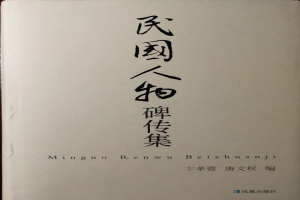 民國人物
碑传集
Minguo Renwu Beizhuanji
卞孝萱 唐文权 编
凤凰出版社